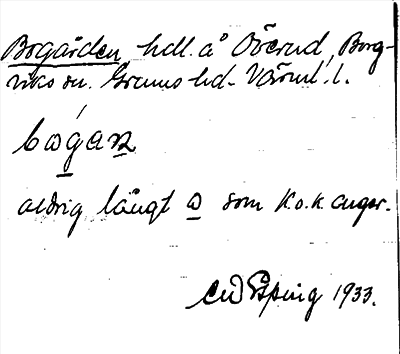 Bogården, hdl. å Överud, Borg-
viks sn. Grums hd. Värml. l.
bωgan
aldrig långt ω som K.o.k. anger.
CW Esping 1933.